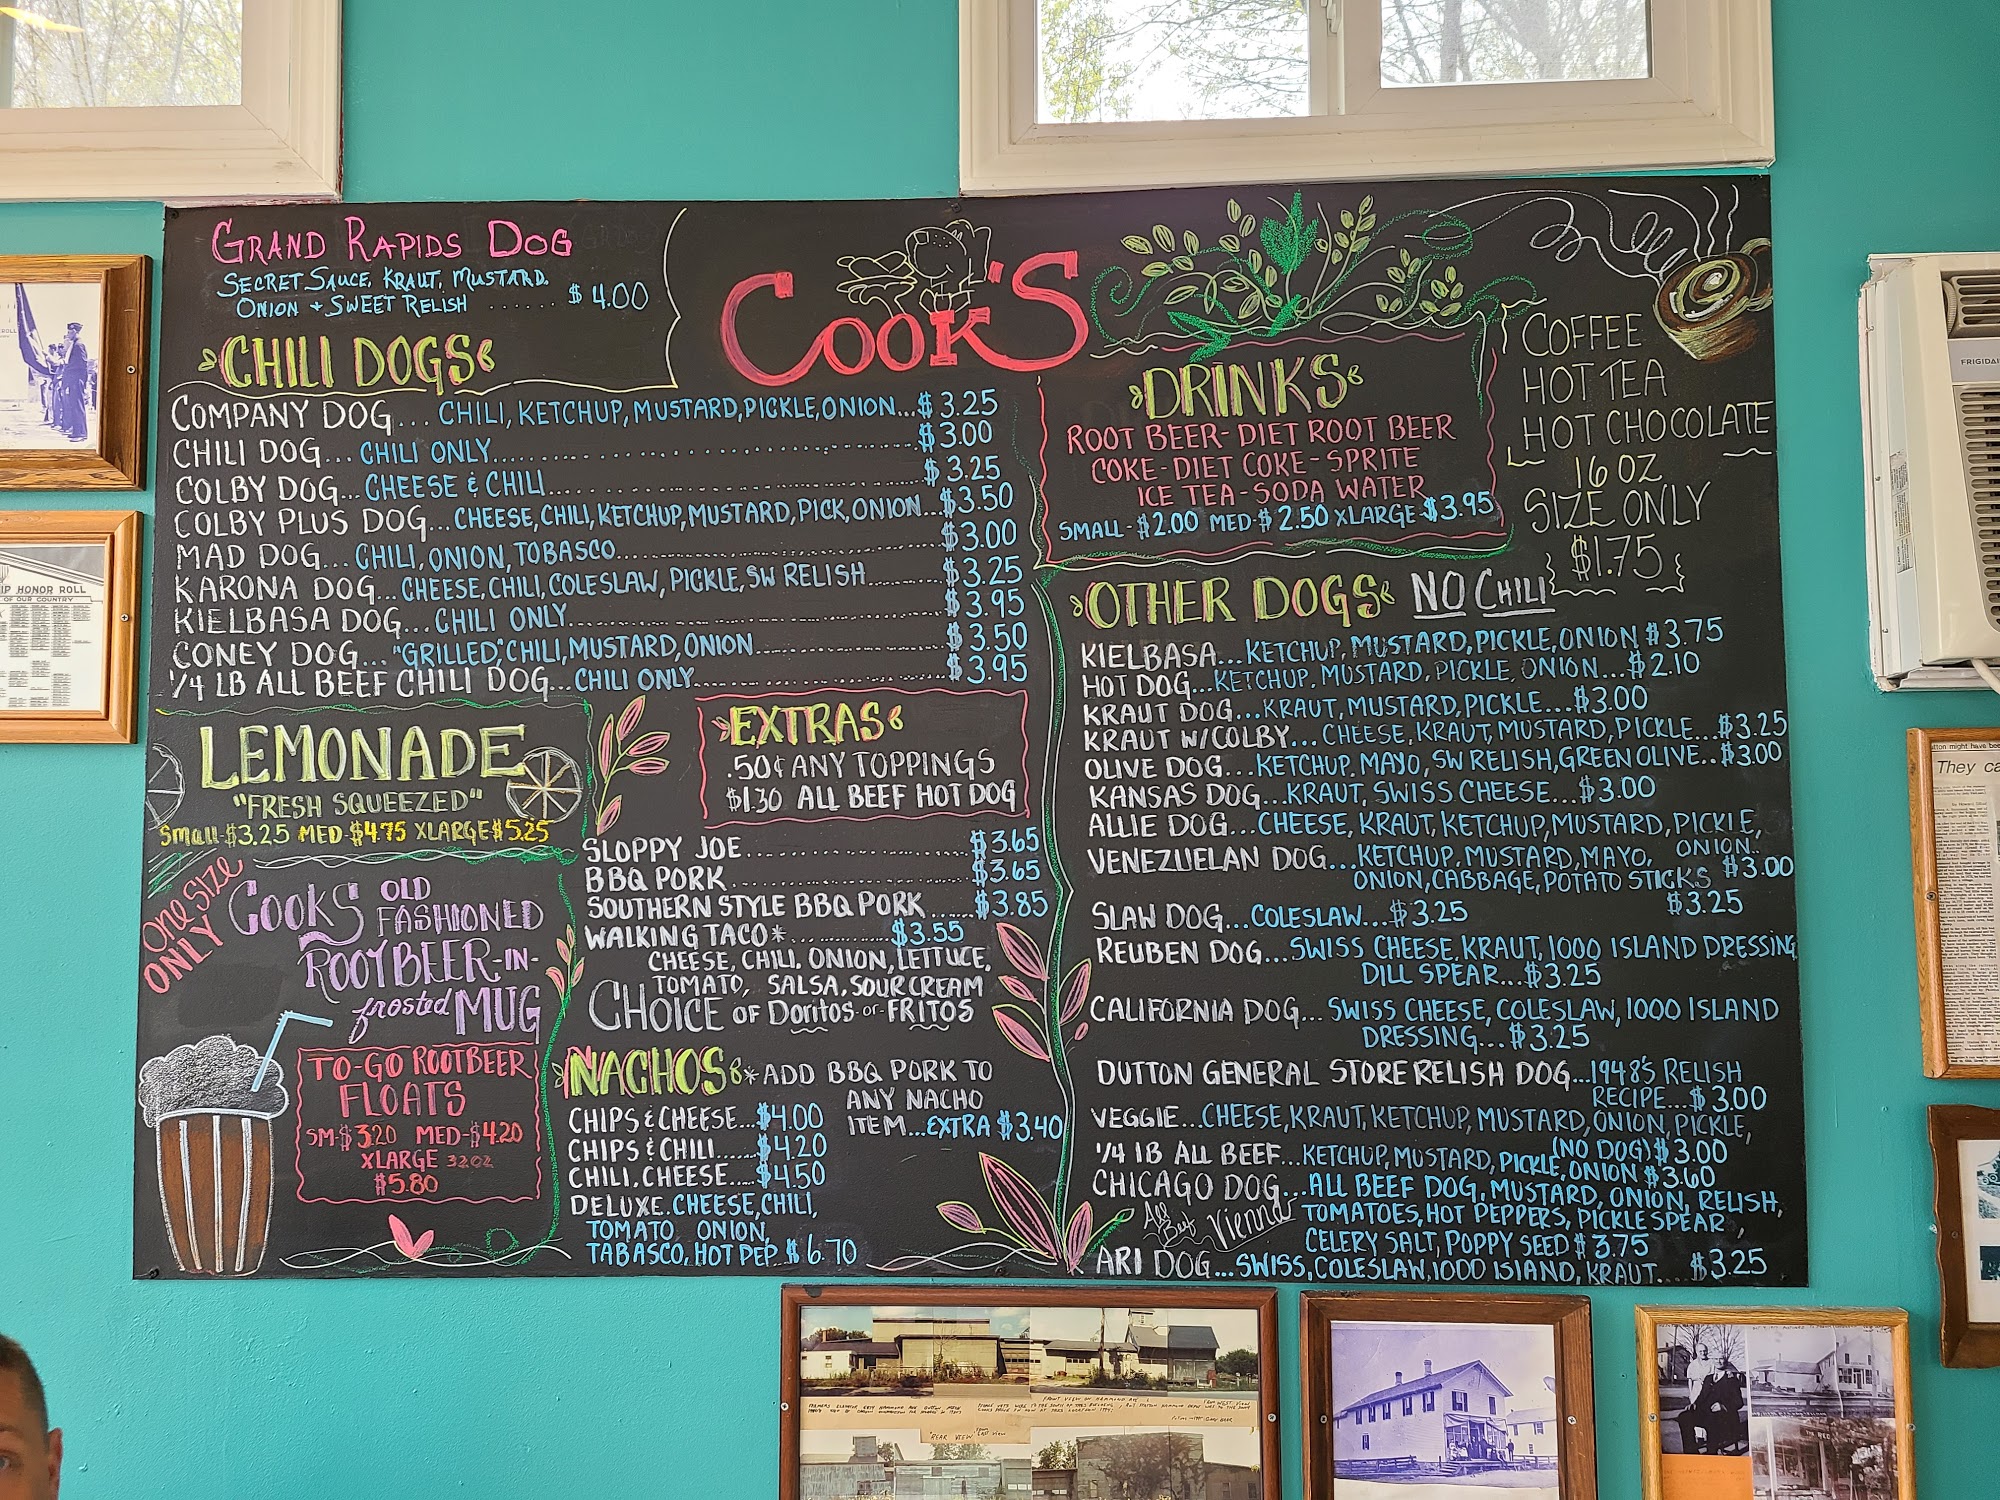 GRAND RAPIDS DOG
SECRET SAUCE, KRAUT, MUSTARD.
ONION + SWEET RELISH ...... $4.00
COOK'S
CHILI DOGS
COMPANY DOG... CHILI, KETCHUP, MUSTARD, PICKLE, ONION...$3.25
CHILI DOG... CHILI ONLY...$3.00
COLBY DOG...CHEESE & CHILI...$3.25
COLBY PLUS DOG...CHEESE, CHILI, KETCHUP, MUSTARD, PICK, ONION...$3.50
MAD DOG...CHILI, ONION, TOBASCO...$3.00
KARONA DOG...CHEESE, CHILI, COLESLAW, PICKLE, SW RELISH...$3.25
KIELBASA DOG...CHILI ONLY...$3.95
CONEY DOG..."GRILLED", CHILI, MUSTARD, ONION...$3.50
1/4 LB ALL BEEF CHILI DOG...CHILI ONLY...$3.95
LEMONADE
"FRESH SQUEEZED"
Small-$3.25 MED-$4.75 XLARGE $5.25
ONE SIZE
ONLY
COOKS OLD
FASHIONED
ROOTBEER-IN-
frosted MUG
TO-GO ROOTBEER
FLOATS
SM-$3.20 MED-$4.20
XLARGE 32OZ
$5.80
EXTRAS
.50¢ ANY TOPPINGS
$1.30 ALL BEEF HOT DOG
SLOPPY JOE...$3.65
BBQ PORK...$3.65
SOUTHERN STYLE BBQ PORK...$3.85
WALKING TACO*...$3.55
CHEESE, CHILI, ONION, LETTUCE,
TOMATO, SALSA, SOUR CREAM
CHOICE OF Doritos -or- FRITOS
NACHOS *ADD BBQ PORK TO
ANY NACHO
ITEM...EXTRA $3.40
CHIPS & CHEESE...$4.00
CHIPS & CHILI......$4.20
CHILI, CHEESE....$4.50
DELUXE.CHEESE, CHILI,
TOMATO, ONION,
TABASCO, HOT PEP. $6.70
DRINKS
ROOT BEER-DIET ROOT BEER
COKE-DIET COKE-SPRITE
ICE TEA-SODA WATER
SMALL-$2.00 MED-$2.50 XLARGE-$3.95
COFFEE
HOT TEA
HOT CHOCOLATE
16 OZ
SIZE ONLY
$1.75
OTHER DOGS NO CHILI
KIELBASA...KETCHUP, MUSTARD, PICKLE, ONION $3.75
HOT DOG...KETCHUP, MUSTARD, PICKLE, ONION...$2.10
KRAUT DOG...KRAUT, MUSTARD, PICKLE...$3.00
KRAUT W/COLBY...CHEESE, KRAUT, MUSTARD, PICKLE...$3.25
OLIVE DOG...KETCHUP, MAYO, SW RELISH, GREEN OLIVE..$3.00
KANSAS DOG...KRAUT, SWISS CHEESE...$3.00
ALLIE DOG...CHEESE, KRAUT, KETCHUP, MUSTARD, PICKLE,
ONION..$3.00
VENEZUELAN DOG...KETCHUP, MUSTARD, MAYO,
ONION, CABBAGE, POTATO STICKS $3.25
SLAW DOG...COLESLAW...$3.25
REUBEN DOG...SWISS CHEESE, KRAUT, 1000 ISLAND DRESSING
DILL SPEAR...$3.25
CALIFORNIA DOG...SWISS CHEESE, COLESLAW, 1000 ISLAND
DRESSING...$3.25
DUTTON GENERAL STORE RELISH DOG...1948'S RELISH
RECIPE...$3.00
VEGGIE...CHEESE, KRAUT, KETCHUP, MUSTARD, ONION, PICKLE,
(NO DOG) $3.00
1/4 LB ALL BEEF...KETCHUP, MUSTARD, PICKLE, ONION $3.60
CHICAGO DOG...ALL BEEF DOG, MUSTARD, ONION, RELISH,
All Beef Vienna
TOMATOES, HOT PEPPERS, PICKLE SPEAR,
CELERY SALT, POPPY SEED $3.75
ARI DOG...SWISS, COLESLAW, 1000 ISLAND, KRAUT....$3.25
HONOR ROLL
OF OUR COUNTRY
They ca
"REAR VIEW"